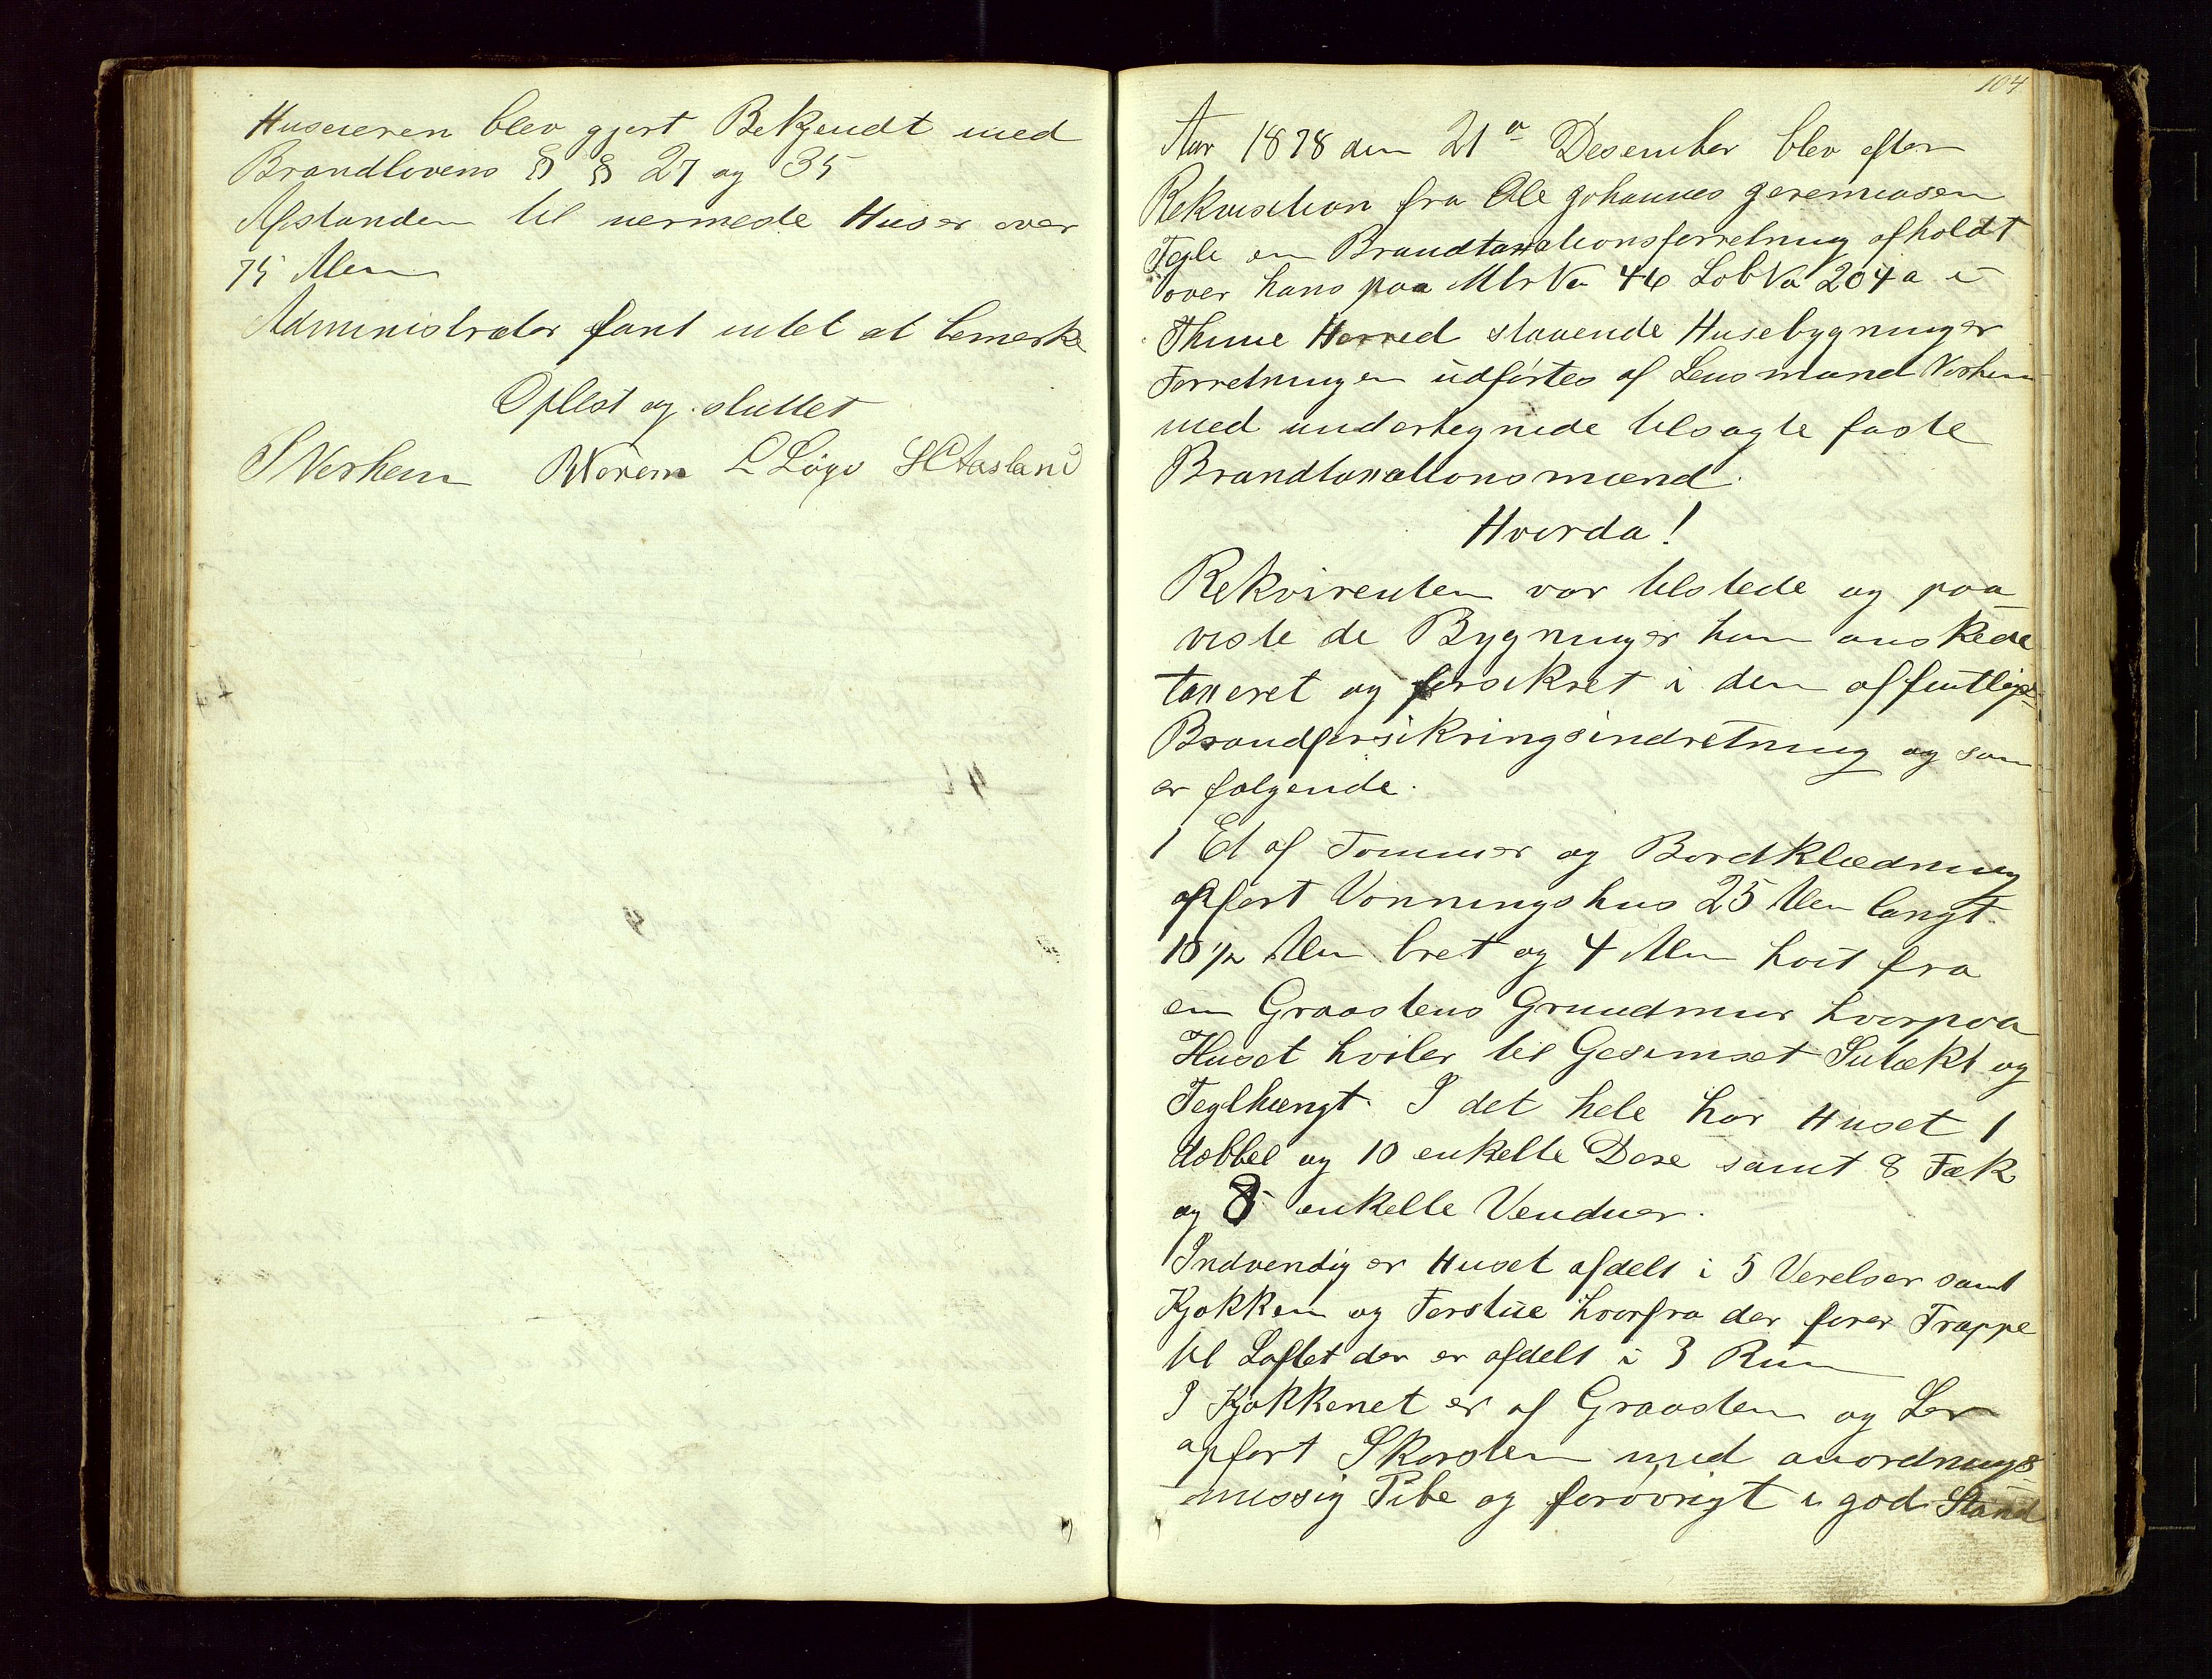 Huseieren blev gjort Bekjendt med
Brandlovens § § 27 og 35
Afstanden til nermeste Huser over
75 Alen
Administrator fant intet at bemerke
Oplest og sluttet
S Verhem B Norem L Lögö S C Aasland
104
Aar 1878 den 21de Desember blev efter
Rekvisition fra Ole Johannes Jeremiasen
Tegle en Brandtaxationsforretning afholdt
over hans paa Mtr No 46 Lob No 204a i
Thime Herred staaende Husebygninger
Forretningen udførtes af Lensmand Verhem
med undertegnede tilsagte faste
Brandtaxationsmænd.
Hvorda!
Rekvirenten var tilstede og paa
viste de Bygninger han ønskede
taxeret og forsikret i den offentlige
Brandforsikringsindretning og som
er følgende.
1 Et af Tømmer og Bordklædning
opført Vonningshus 25 Alen langt
10 1/2 Alen bret og 4 Alen høit fra
en Graastens Grundmur hvorpaa
Huset hviler til Gesimset Sutækt og
Teglhængt. I det hele har Huset 1
dobbel og 10 enkelte Døre samt 8 Fæk
og 8 enkelte Venduer.
Indvendig er Huset afdelt i 5 Verelser samt
Kjøkken og Forstue hvorfra der fører Trappe
til Loftet der er afdelt i 3 Rum
I Kjøkkenet er af Graasten og Ler
opført Skorsten med anordnings
messig Pibe og forøvrigt i god Stand